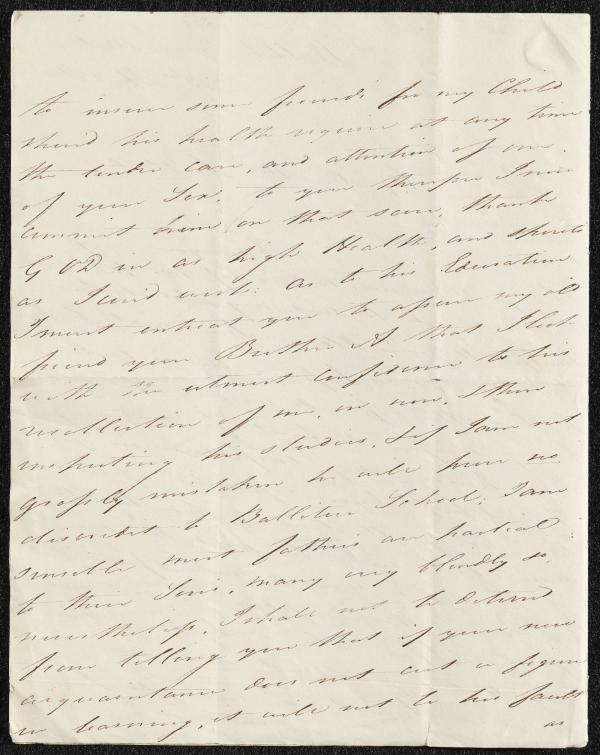 to insure some friends for my Child
shoud his health require at any time
the tender care, and attention of one
of your Sex, to you therefore I now
commit him on that score, thanks
GOD in as high Health, and spirits
as I coud wish: as to his Education
I must entreat you to assure my old
friend your Brother A. that I look
with the utmost confidence to his
recollection of me, in now, & then
inspecting his studies, & if I am not
grossly mistaken he will prove no
discredit to Balliten School; I am
sensible most fathers are partial
to their Sons, many very blindly so
nevertheless, I shall not be deterred
from telling you that if your new
acquaintance does not cut a figure
in learning, it will not be his fault
as